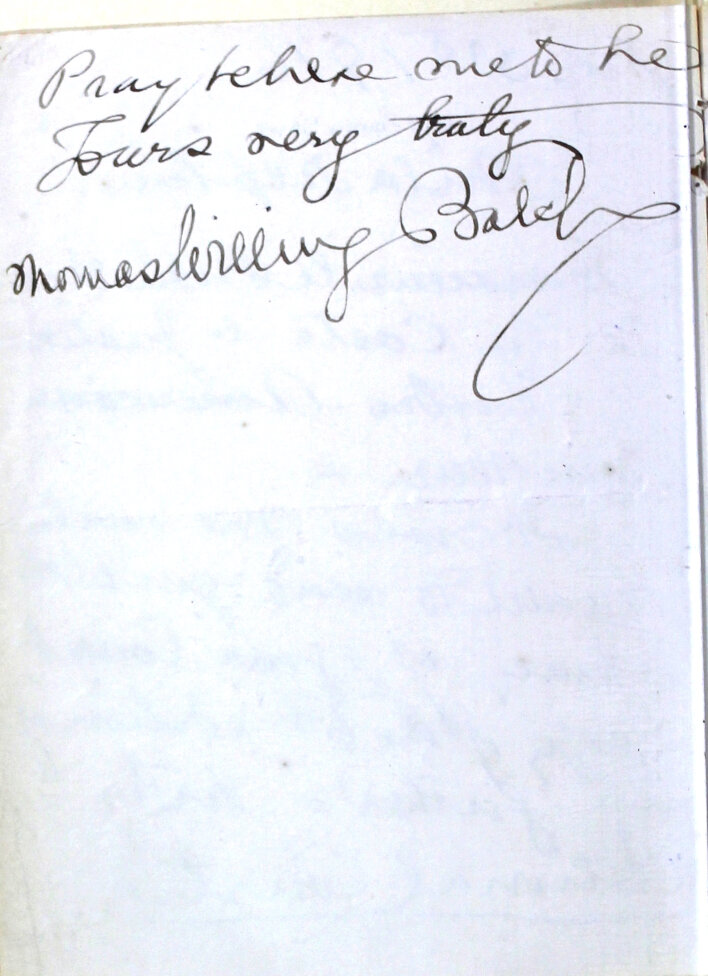 Pray believe me to be
Yours very truly
Thomas Willing Balch